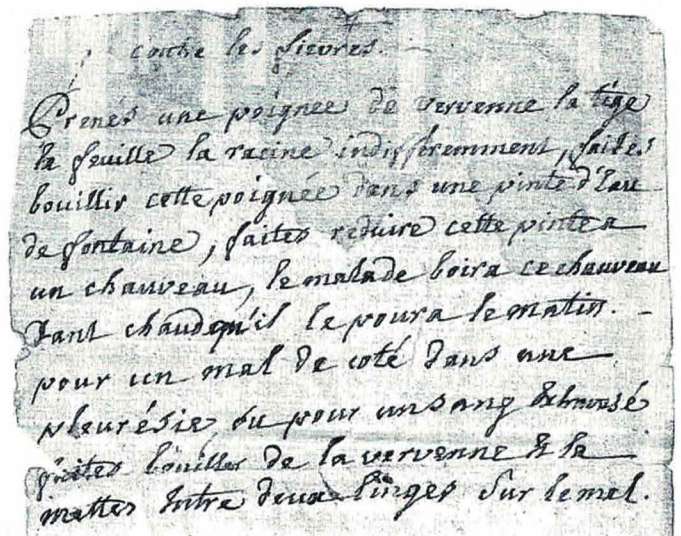 contre les fievres.
Prenés une poignée de vervenne la tige
la feuille la racine indifferemment, faites
bouillir cette poignée dans une pinte d'Eau
de fontaine, faites reduire cette pinte a
un chauveau, le malade boira ce chauveau
tant chaud qu'il le poura le matin. -
pour un mal de coté dans une
pleurésie ou pour un sang Extravasé
faites bouillir de la vervenne & la
mettes Entre deux linges sur le mal.